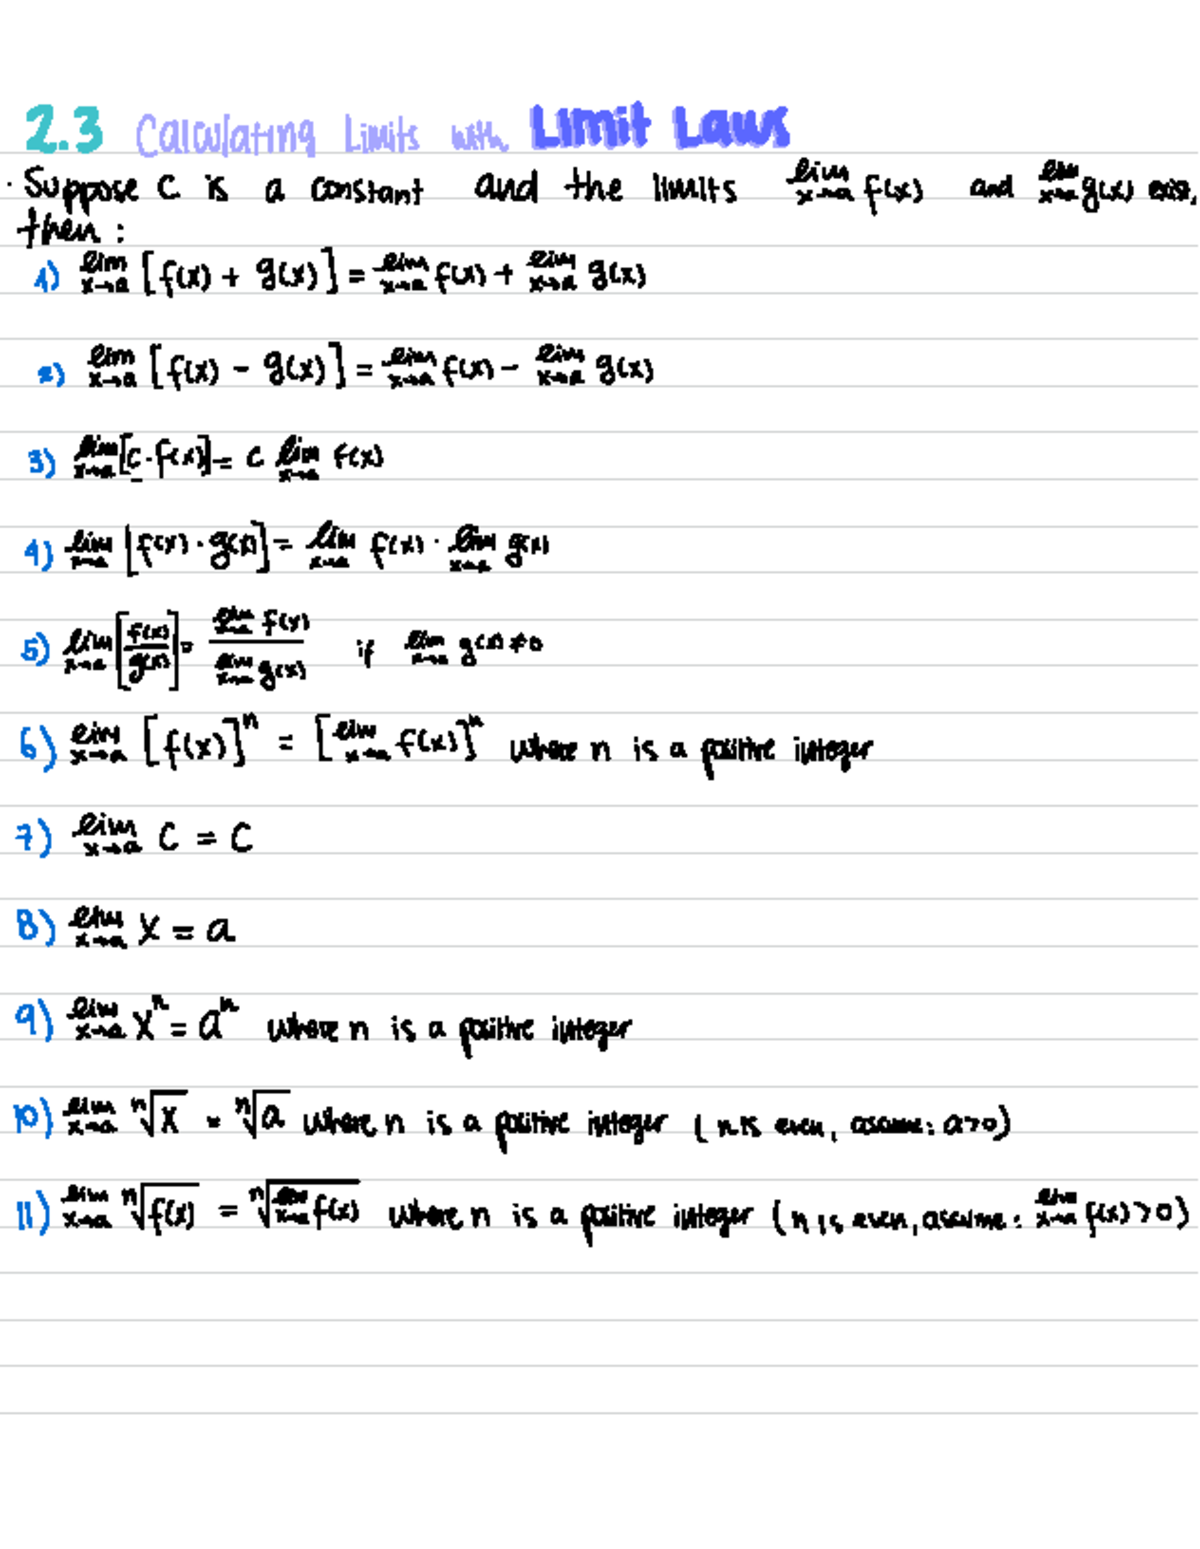 2.3 Calculating Limits with Limit Laws
· Suppose C is a constant and the limits lim x→a f(x) and lim x→a g(x) exist,
then :
1) lim x→a [f(x) + g(x)] = lim x→a f(x) + lim x→a g(x)
2) lim x→a [f(x) - g(x)] = lim x→a f(x) - lim x→a g(x)
3) lim x→a [c · f(x)] = c lim x→a f(x)
4) lim x→a [f(x) · g(x)] = lim x→a f(x) · lim x→a g(x)
5) lim x→a [f(x)/g(x)] = lim x→a f(x) / lim x→a g(x) if lim x→a g(x) ≠ 0
6) lim x→a [f(x)]ⁿ = [lim x→a f(x)]ⁿ where n is a positive integer
7) lim x→a C = C
8) lim x→a X = a
9) lim x→a Xⁿ = aⁿ where n is a positive integer
10) lim x→a ⁿ√x = ⁿ√a where n is a positive integer (n is even, assume: a>0)
11) lim x→a ⁿ√f(x) = ⁿ√lim x→a f(x) where n is a positive integer (n is even, assume: lim x→a f(x)>0)